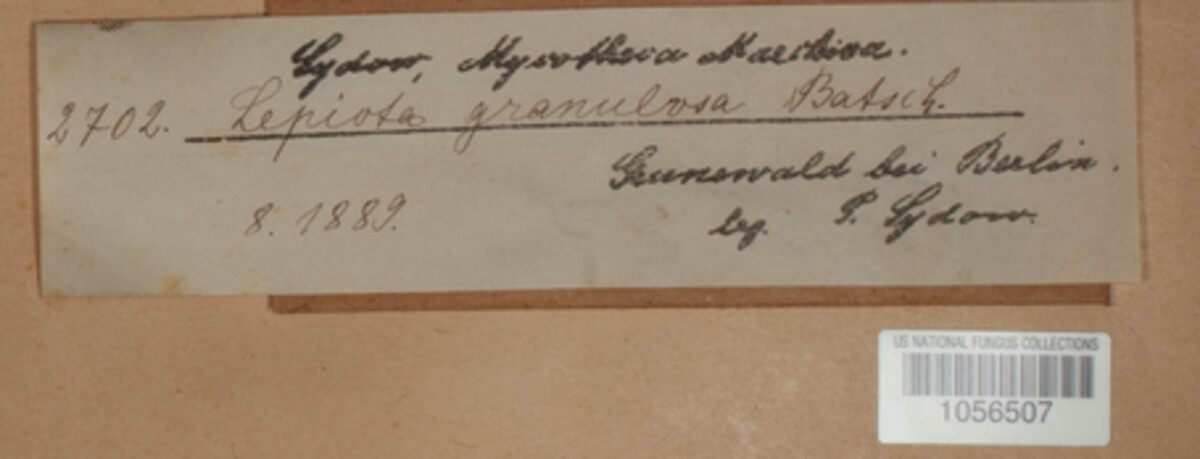 Sydow, Mycotheca Marchica.
2702. Lepiota granulosa Batsch.
Grunewald bei Berlin.
8. 1889.
leg. P. Sydow.
US NATIONAL FUNGUS COLLECTIONS
1056507